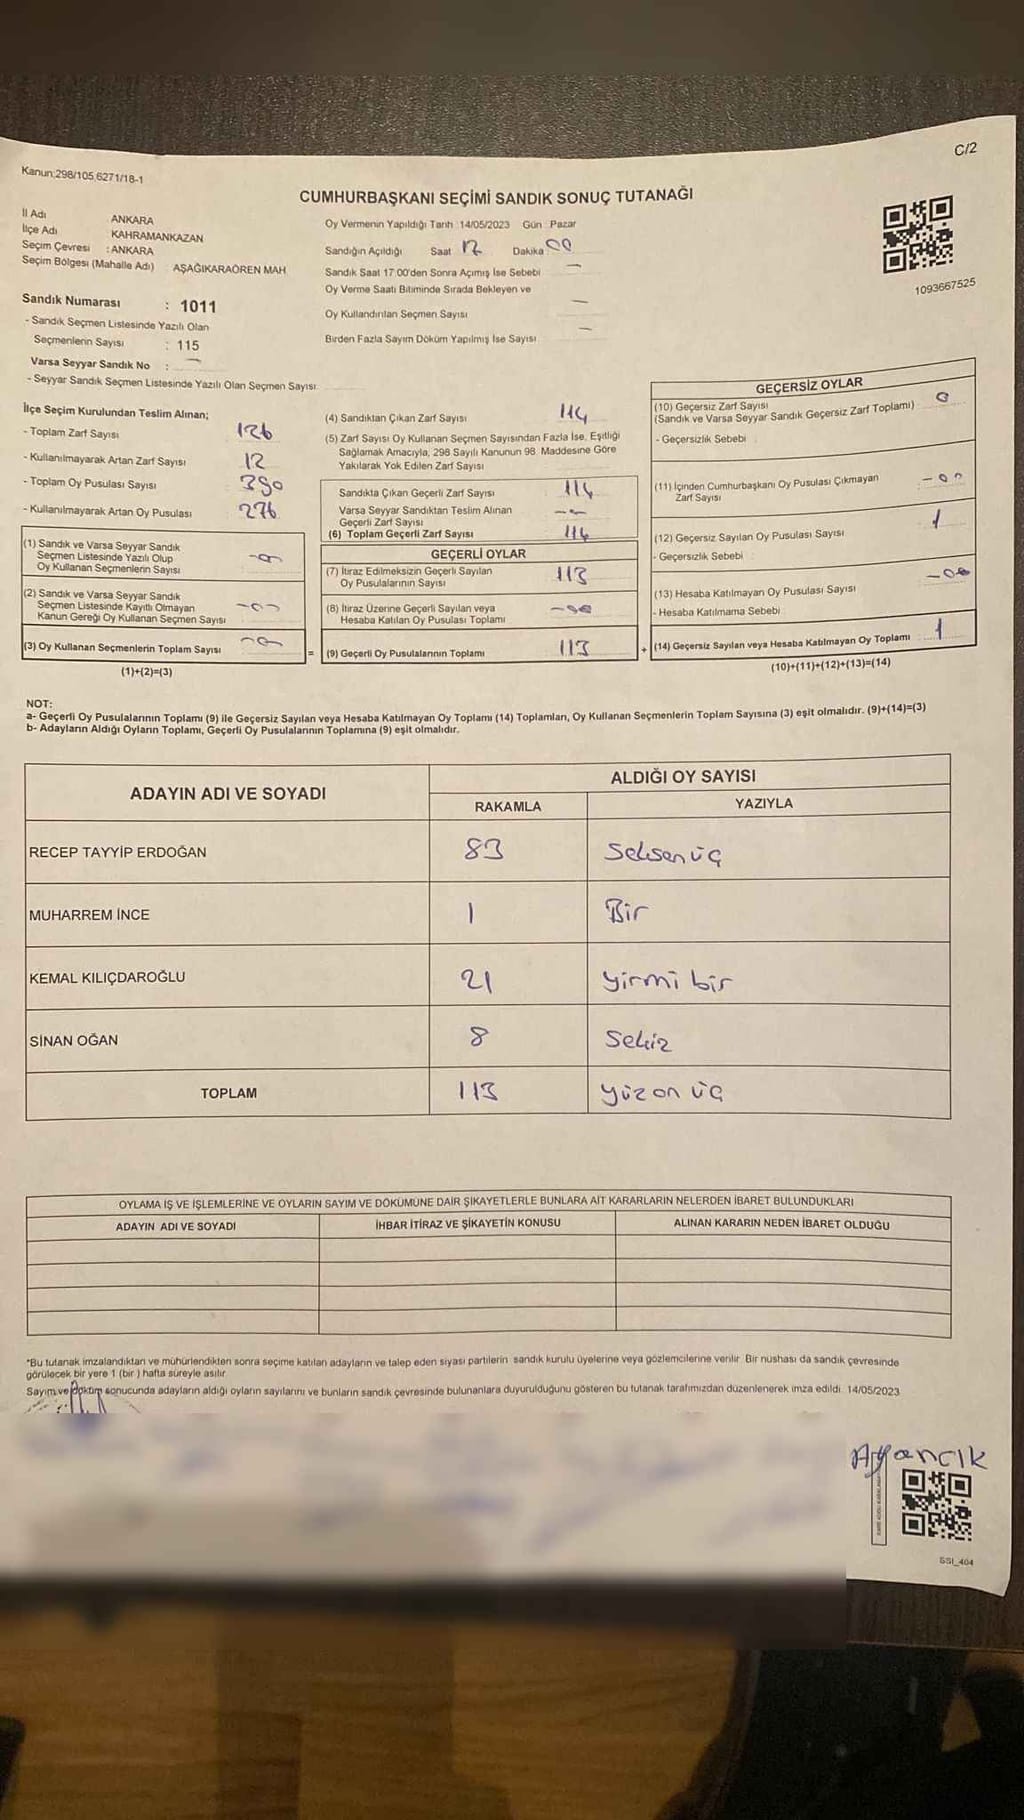 C/2
Kanun:298/105,6271/18-1
CUMHURBAŞKANI SEÇİMİ SANDIK SONUÇ TUTANAĞI
İl Adı ANKARA
İlçe Adı KAHRAMANKAZAN
Seçim Çevresi : ANKARA
Seçim Bölgesi (Mahalle Adı) AŞAĞIKARAÖREN MAH
Sandık Numarası : 1011
- Sandık Seçmen Listesinde Yazılı Olan
Seçmenlerin Sayısı : 115
Varsa Seyyar Sandık No : —
- Seyyar Sandık Seçmen Listesinde Yazılı Olan Seçmen Sayısı:
Oy Vermenin Yapıldığı Tarih :14/05/2023 Gün : Pazar
Sandığın Açıldığı Saat 17 Dakika 00
Sandık Saat 17:00'den Sonra Açımış İse Sebebi —
Oy Verme Saati Bitiminde Sırada Bekleyen ve
Oy Kullandırılan Seçmen Sayısı —
Birden Fazla Sayım Döküm Yapılmış İse Sayısı —
1093667525
İlçe Seçim Kurulundan Teslim Alınan;
- Toplam Zarf Sayısı 126
- Kullanılmayarak Artan Zarf Sayısı 12
- Toplam Oy Pusulası Sayısı 390
- Kullanılmayarak Artan Oy Pusulası 276
(1) Sandık ve Varsa Seyyar Sandık
Seçmen Listesinde Yazılı Olup
Oy Kullanan Seçmenlerin Sayısı
(2) Sandık ve Varsa Seyyar Sandık
Seçmen Listesinde Kayıtlı Olmayan
Kanun Gereği Oy Kullanan Seçmen Sayısı
(3) Oy Kullanan Seçmenlerin Toplam Sayısı
(1)+(2)=(3)
(4) Sandıktan Çıkan Zarf Sayısı 114
(5) Zarf Sayısı Oy Kullanan Seçmen Sayısından Fazla İse, Eşitliği
Sağlamak Amacıyla, 298 Sayılı Kanunun 98. Maddesine Göre
Yakılarak Yok Edilen Zarf Sayısı
Sandıkta Çıkan Geçerli Zarf Sayısı 114
Varsa Seyyar Sandıktan Teslim Alınan
Geçerli Zarf Sayısı
(6) Toplam Geçerli Zarf Sayısı 114
GEÇERLİ OYLAR
(7) İtiraz Edilmeksizin Geçerli Sayılan
Oy Pusulalarının Sayısı 113
(8) İtiraz Üzerine Geçerli Sayılan veya
Hesaba Katılan Oy Pusulası Toplamı
= (9) Geçerli Oy Pusulalarının Toplamı 113
GEÇERSİZ OYLAR
(10) Geçersiz Zarf Sayısı
(Sandık ve Varsa Seyyar Sandık Geçersiz Zarf Toplamı) 0
- Geçersizlik Sebebi
(11) İçinden Cumhurbaşkanı Oy Pusulası Çıkmayan
Zarf Sayısı – 00
(12) Geçersiz Sayılan Oy Pusulası Sayısı 1
- Geçersizlik Sebebi
(13) Hesaba Katılmayan Oy Pusulası Sayısı – 00
- Hesaba Katılmama Sebebi
+ (14) Geçersiz Sayılan veya Hesaba Katılmayan Oy Toplamı 1
(10)+(11)+(12)+(13)=(14)
NOT:
a- Geçerli Oy Pusulalarının Toplamı (9) ile Geçersiz Sayılan veya Hesaba Katılmayan Oy Toplamı (14) Toplamları, Oy Kullanan Seçmenlerin Toplam Sayısına (3) eşit olmalıdır. (9)+(14)=(3)
b- Adayların Aldığı Oyların Toplamı, Geçerli Oy Pusulalarının Toplamına (9) eşit olmalıdır.
ADAYIN ADI VE SOYADI ALDIĞI OY SAYISI
RAKAMLA YAZIYLA
RECEP TAYYİP ERDOĞAN 83 Seksen üç
MUHARREM İNCE 1 Bir
KEMAL KILIÇDAROĞLU 21 yirmi bir
SİNAN OĞAN 8 Sekiz
TOPLAM 113 yüz on üç
OYLAMA İŞ VE İŞLEMLERİNE VE OYLARIN SAYIM VE DÖKÜMÜNE DAİR ŞİKAYETLERLE BUNLARA AİT KARARLARIN NELERDEN İBARET BULUNDUKLARI
ADAYIN ADI VE SOYADI İHBAR İTİRAZ VE ŞİKAYETİN KONUSU ALINAN KARARIN NEDEN İBARET OLDUĞU
*Bu tutanak imzalandıktan ve mühürlendikten sonra seçime katılan adayların ve talep eden siyasi partilerin sandık kurulu üyelerine veya gözlemcilerine verilir. Bir nüshası da sandık çevresinde
görülecek bir yere 1 (bir ) hafta süreyle asılır.
Sayım ve döküm sonucunda adayların aldığı oyların sayılarını ve bunların sandık çevresinde bulunanlara duyurulduğunu gösteren bu tutanak tarafımızdan düzenlenerek imza edildi. 14/05/2023
Ayancık
SSI_404